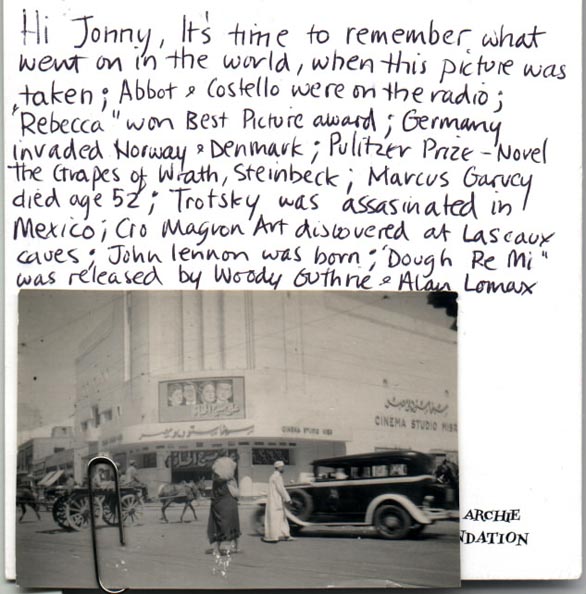 Hi Jonny, It's time to remember what
went on in the world, when this picture was
taken; Abbot & Costello were on the radio;
"Rebecca" won Best Picture award; Germany
invaded Norway & Denmark; Pulitzer Prize - Novel
the Grapes of Wrath, Steinbeck; Marcus Garvey
died age 52; Trotsky was assasinated in
Mexico; Cro Magnon Art discovered at Lascaux
caves; John lennon was born; "Dough Re Mi"
was released by Woody Guthrie & Alan Lomax
CINEMA STUDIO MISR
CINEMA STUDIO MISR
ARCHIE
NDATION